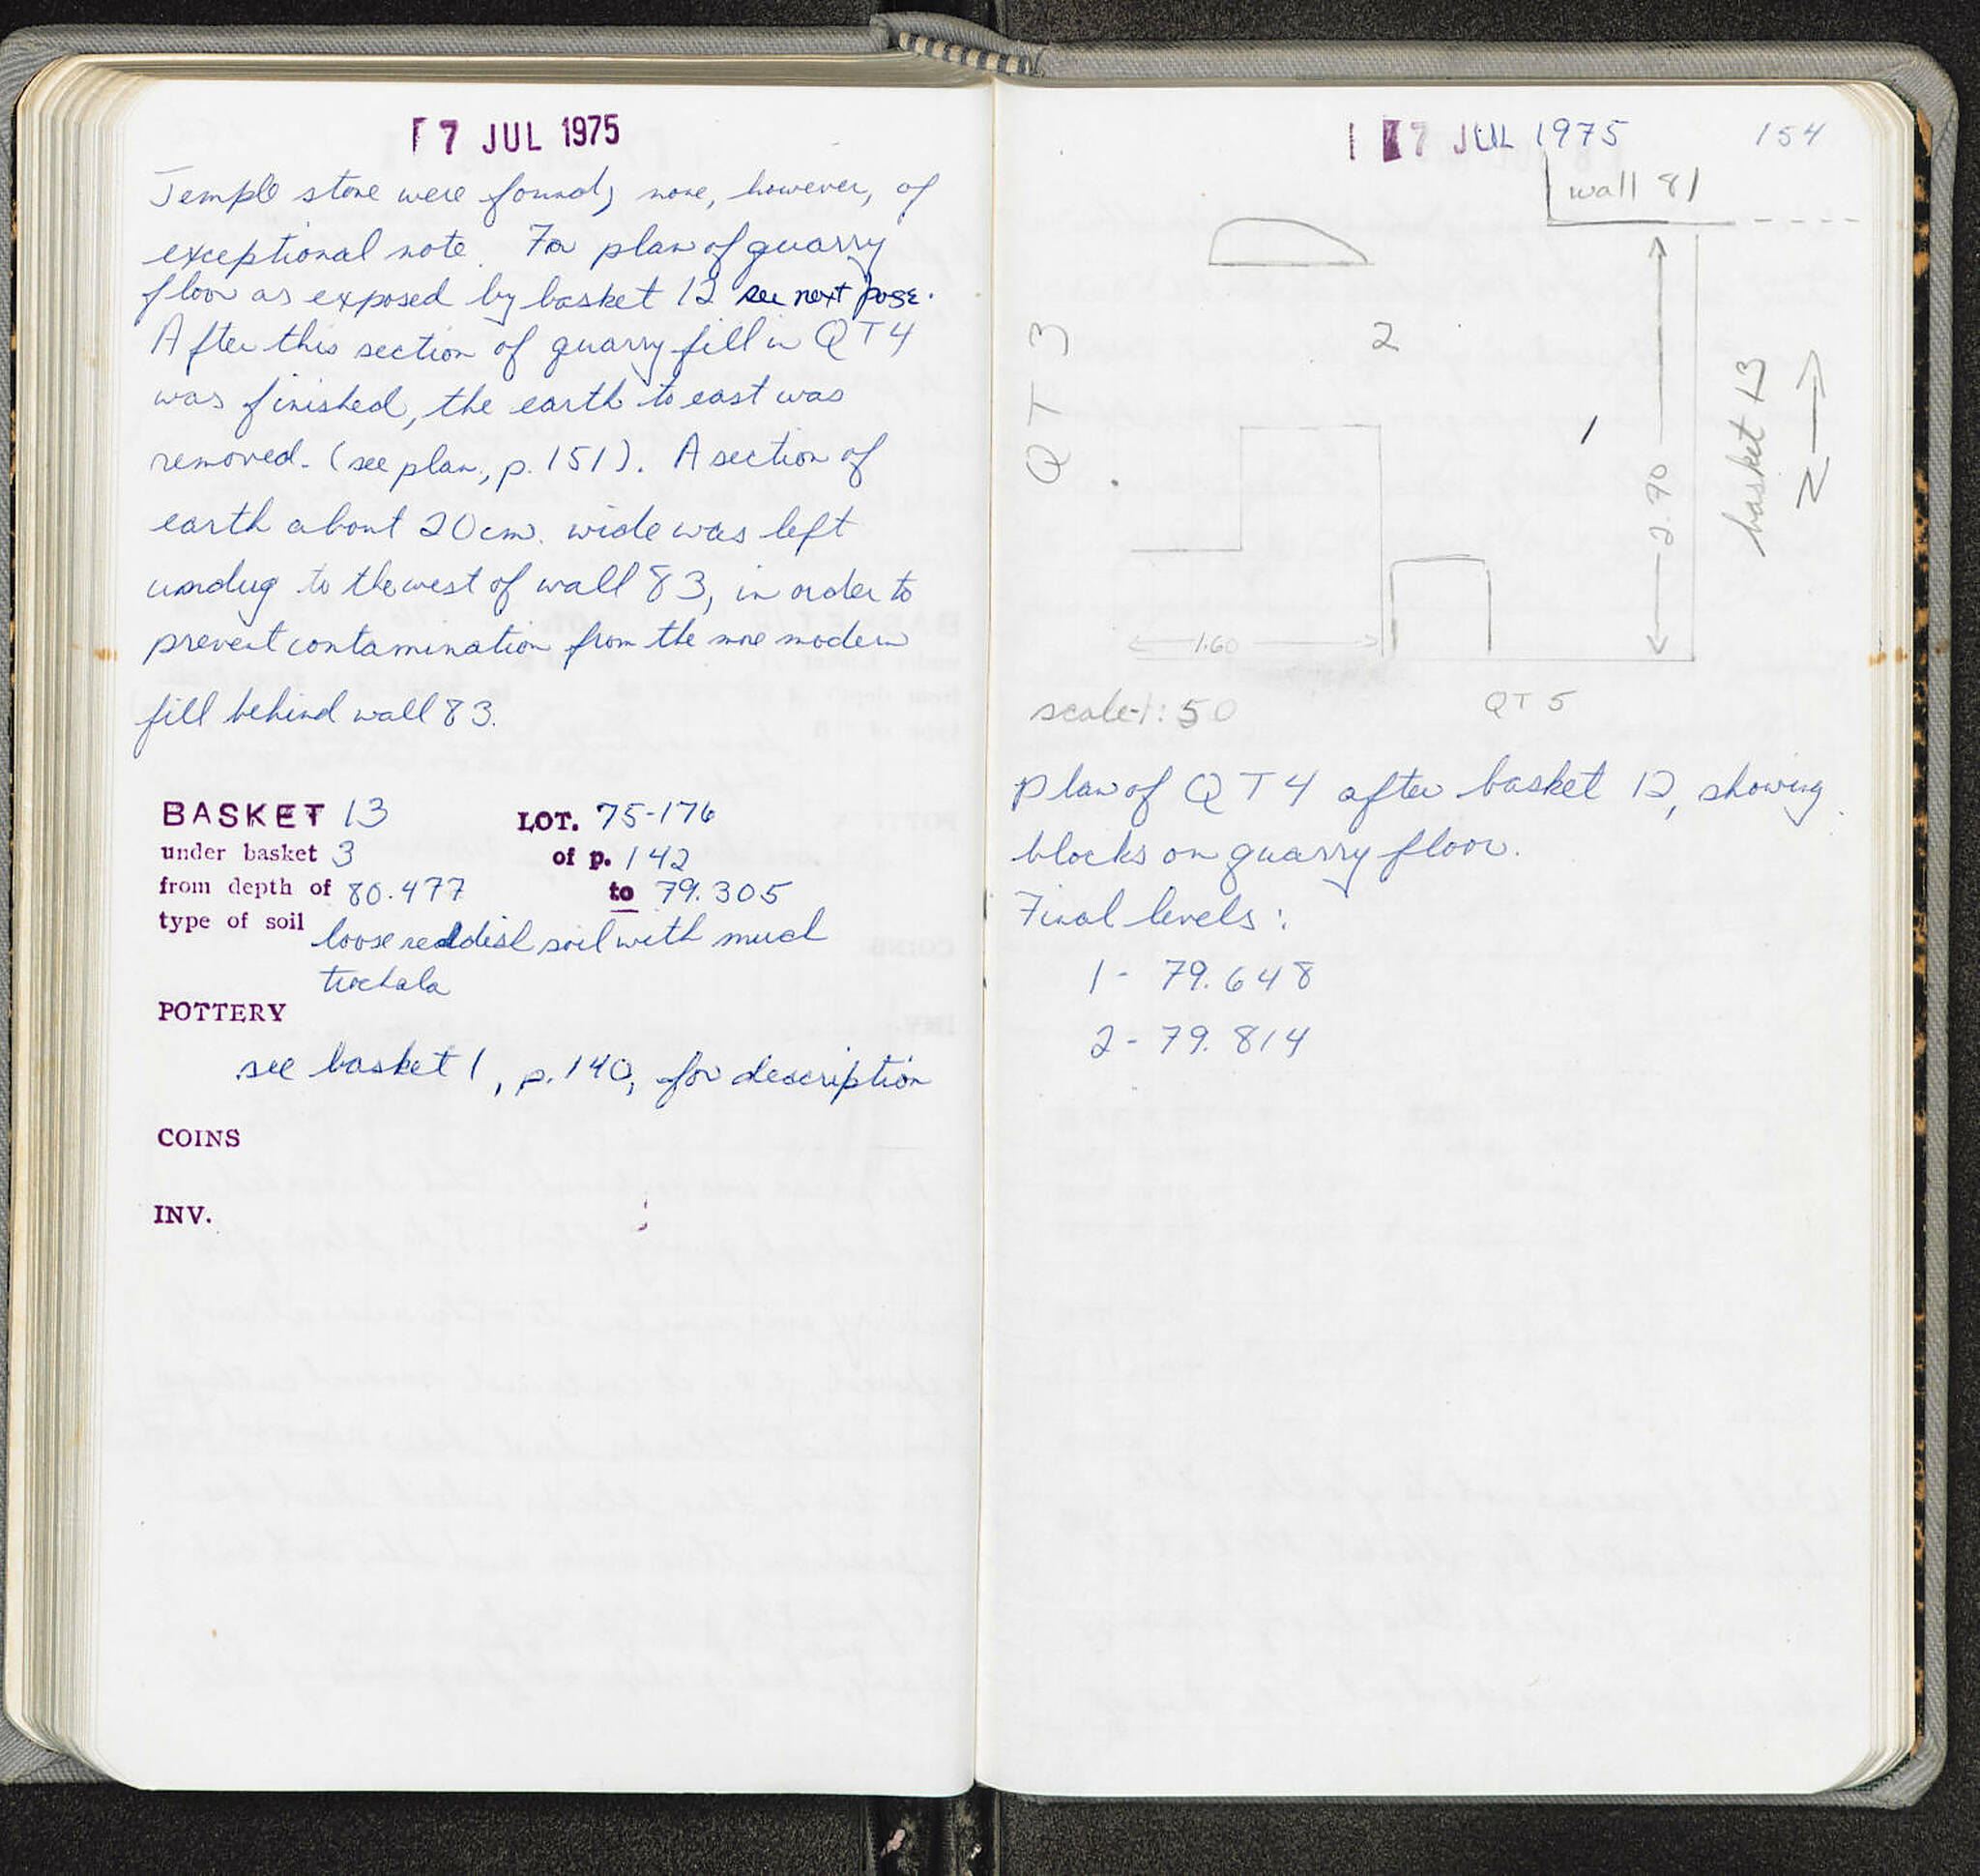 17 JUL 1975
Temple stone were found, none, however, of
exceptional note. For plan of quarry
floor as exposed by basket 12 see next page.
After this section of quarry fill in QT4
was finished, the earth to east was
removed. (see plan, p. 151). A section of
earth about 20cm. wide was left
undug to the west of wall 83, in order to
prevent contamination from the more modern
fill behind wall 83.
BASKET 13 LOT. 75-176
under basket 3 of p. 142
from depth of 80.477 to 79.305
type of soil loose reddish soil with much
tirchala
POTTERY
see basket 1, p. 140, for description
COINS
INV.
17 JUL 1975 154
wall 81
QT 3
2
1
2.90
basket 13
N
1.60
scale-1:50
QT 5
plan of QT4 after basket 12, showing
blocks on quarry floor.
Final levels:
1- 79.648
2- 79.814